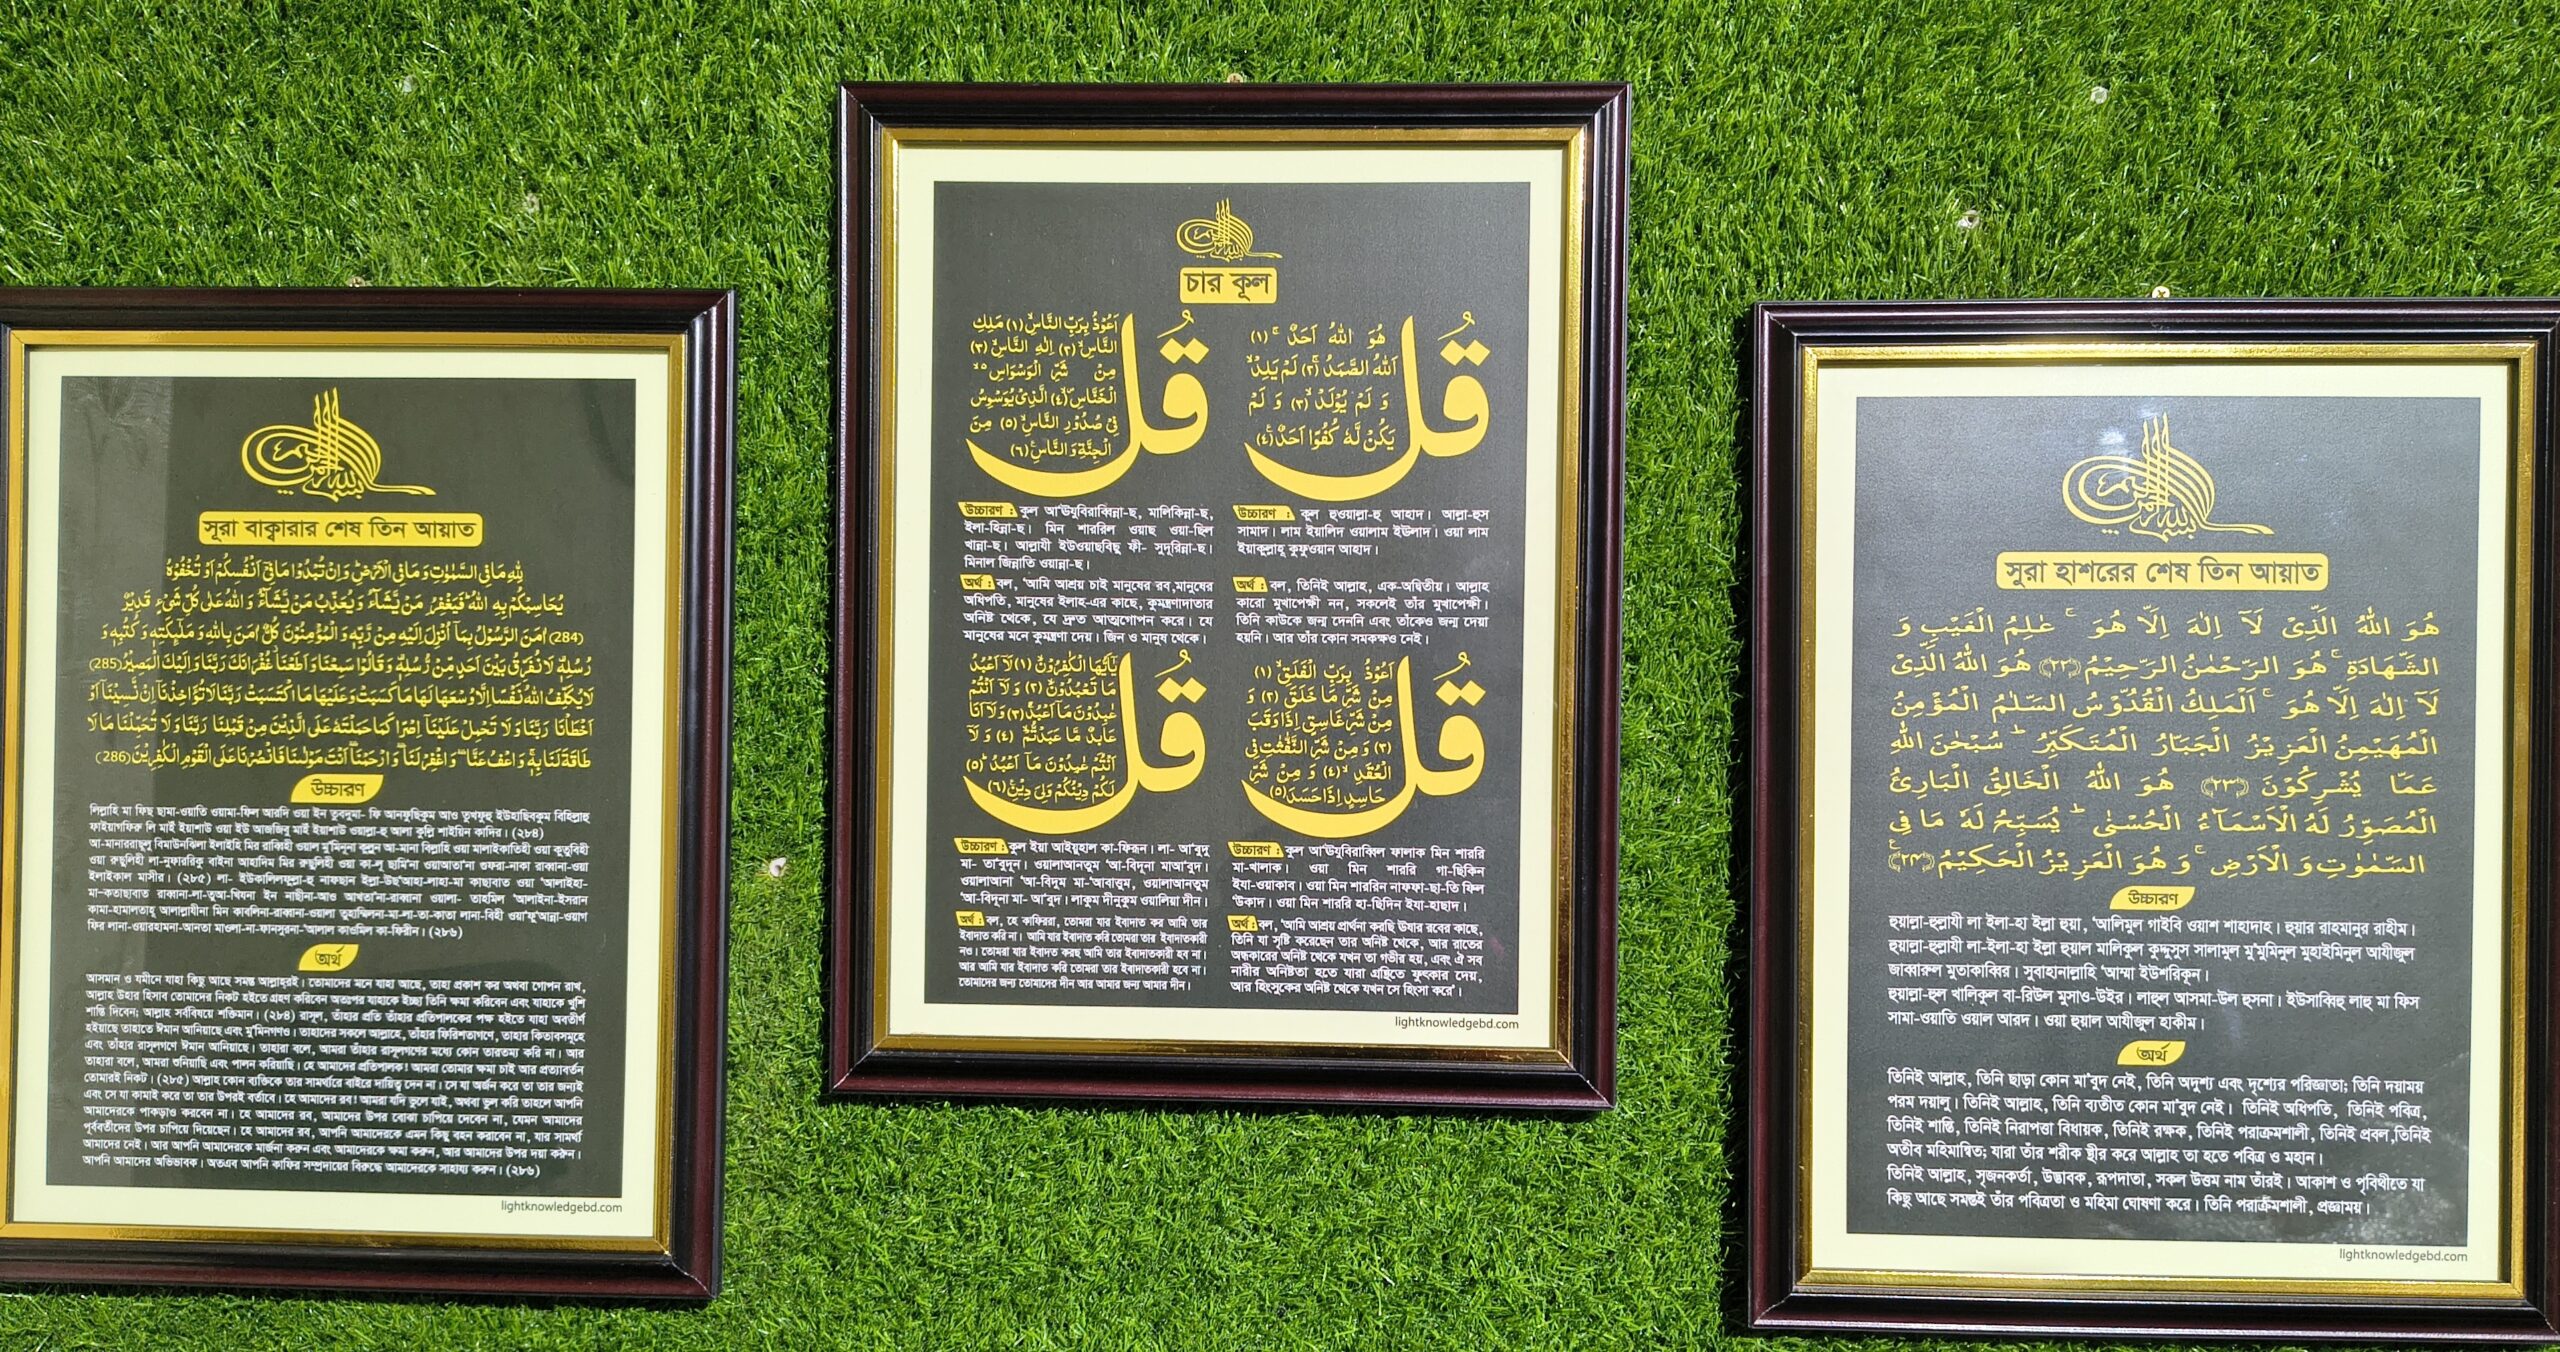 সূরা বাক্বারার শেষ তিন আয়াত
لِلّٰهِ مَا فِى السَّمٰوٰتِ وَمَا فِى الْاَرْضِؕ وَاِنْ تُبْدُوْا مَا فِىْٓ اَنْفُسِكُمْ اَوْ تُخْفُوْهُ
يُحَاسِبْكُمْ بِهِ اللّٰهُؕ فَيَغْفِرُ مَنْ يَّشَآءُ وَيُعَذِّبُ مَنْ يَّشَآءُؕ وَاللّٰهُ عَلٰى كُلِّ شَىْءٍ قَدِيْرٌ
(284) اٰمَنَ الرَّسُوْلُ بِمَآ اُنْزِلَ اِلَيْهِ مِنْ رَّبِّهٖ وَالْمُؤْمِنُوْنَؕ كُلٌّ اٰمَنَ بِاللّٰهِ وَمَلٰٓئِكَتِهٖ وَكُتُبِهٖ وَ
رُسُلِهٖ لَا نُفَرِّقُ بَيْنَ اَحَدٍ مِّنْ رُّسُلِهٖ وَقَالُوْا سَمِعْنَا وَاَطَعْنَا غُفْرَانَكَ رَبَّنَا وَاِلَيْكَ الْمَصِيْرُ (285)
لَا يُكَلِّفُ اللّٰهُ نَفْسًا اِلَّا وُسْعَهَا لَهَا مَا كَسَبَتْ وَعَلَيْهَا مَا اكْتَسَبَتْ رَبَّنَا لَا تُؤَاخِذْنَآ اِنْ نَّسِيْنَآ اَوْ
اَخْطَاْنَا رَبَّنَا وَلَا تَحْمِلْ عَلَيْنَآ اِصْرًا كَمَا حَمَلْتَهٗ عَلَى الَّذِيْنَ مِنْ قَبْلِنَا رَبَّنَا وَلَا تُحَمِّلْنَا مَا لَا
طَاقَةَ لَنَا بِهٖ وَاعْفُ عَنَّا وَاغْفِرْ لَنَا وَارْحَمْنَا اَنْتَ مَوْلٰىنَا فَانْصُرْنَا عَلَى الْقَوْمِ الْكٰفِرِيْنَ (286)
উচ্চারণ
লিল্লাহি মা ফিছ ছামা-ওয়াতি ওয়ামা-ফিল আরদি ওয়া ইন তুবদুমা- ফি আনফুছিকুম আও তুখফুহু ইউহাছিবকুম বিহিল্লাহু
ফাইয়াগফিরু লি মাই ইয়াশাউ ওয়া ইউ আজজিবু মাই ইয়াশাউ ওয়াল্লা-হু আলা কুল্লি শাইয়িন কাদির। (২৮৪)
আ-মানাররাছুলু বিমাউনঝিলা ইলাইহি মির রাব্বিহী ওয়াল মু'মিনূনা কুল্লুন আ-মানা বিল্লাহি ওয়া মালাইকাতিহী ওয়া কুতুবিহী
ওয়া রুছুলিহী লা-নুফাররিকু বাইনা আহাদিম মির রুছুলিহী ওয়া কা-লু ছামি'না ওয়াআতা'না গুফরা-নাকা রাব্বানা-ওয়া
ইলাইকাল মাসীর। (২৮৫) লা- ইউকালিলফুল্লা-হু নাফছান ইল্লা-উছ'আহা-লাহা-মা কাছাবাত ওয়া 'আলাইহা-
মা-কতাছাবাত রাব্বানা-লা-তুআ-খিযনা ইন নাছীনা-আও আখতা'না-রাব্বানা ওয়ালা- তাহমিল 'আলাইনা-ইসরান
কামা-হামালতাহূ আলাল্লাযীনা মিন কাবলিনা-রাব্বানা-ওয়ালা তুহাম্মিলনা-মা-লা-তা-কাতা লানা-বিহী ওয়া'ফু'আন্না-ওয়াগ
ফির লানা-ওয়ারহামনা-আনতা মাওলা-না-ফানসুরনা-'আলাল কাওমিল কা-ফিরীন। (২৮৬)
অর্থ
আসমান ও যমীনে যাহা কিছু আছে সমস্ত আল্লাহরই। তোমাদের মনে যাহা আছে, তাহা প্রকাশ কর অথবা গোপন রাখ,
আল্লাহ উহার হিসাব তোমাদের নিকট হইতে গ্রহণ করিবেন অতঃপর যাহাকে ইচ্ছা তিনি ক্ষমা করিবেন এবং যাহাকে খুশি
শাস্তি দিবেন; আল্লাহ সর্ববিষয়ে শক্তিমান। (২৮৪) রাসূল, তাঁহার প্রতি তাঁহার প্রতিপালকের পক্ষ হইতে যাহা অবতীর্ণ
হইয়াছে তাহাতে ঈমান আনিয়াছে এবং মু'মিনগণও। তাহাদের সকলে আল্লাহে, তাঁহার ফিরিশতাগণে, তাঁহার কিতাবসমূহে
এবং তাঁহার রাসূলগণে ঈমান আনিয়াছে। তাহারা বলে, আমরা তাঁহার রাসূলগণের মধ্যে কোন তারতম্য করি না। আর
তাহারা বলে, আমরা শুনিয়াছি এবং পালন করিয়াছি। হে আমাদের প্রতিপালক! আমরা তোমার ক্ষমা চাই আর প্রত্যাবর্তন
তোমারই নিকট। (২৮৫) আল্লাহ কোন ব্যক্তিকে তার সামর্থ্যের বাইরে দায়িত্ব দেন না। সে যা অর্জন করে তা তার জন্যই
এবং সে যা কামাই করে তা তার উপরই বর্তাবে। হে আমাদের রব! আমরা যদি ভুলে যাই, অথবা ভুল করি তাহলে আপনি
আমাদেরকে পাকড়াও করবেন না। হে আমাদের রব, আমাদের উপর বোঝা চাপিয়ে দেবেন না, যেমন আমাদের
পূর্ববর্তীদের উপর চাপিয়ে দিয়েছেন। হে আমাদের রব, আপনি আমাদেরকে এমন কিছু বহন করাবেন না, যার সামর্থ্য
আমাদের নেই। আর আপনি আমাদেরকে মার্জনা করুন এবং আমাদেরকে ক্ষমা করুন, আর আমাদের উপর দয়া করুন।
আপনি আমাদের অভিভাবক। অতএব আপনি কাফির সম্প্রদায়ের বিরুদ্ধে আমাদেরকে সাহায্য করুন। (২৮৬)
lightknowledgebd.com
চার কূল
قُلْ
هُوَ اللّٰهُ اَحَدٌ ۚ (١)
اَللّٰهُ الصَّمَدُ (٢) لَمْ يَلِدْ
وَ لَمْ يُوْلَدْ (٣) وَ لَمْ
يَكُنْ لَّهٗ كُفُوًا اَحَدٌ (٤)
قُلْ
اَعُوْذُ بِرَبِّ النَّاسِ (١) مَلِكِ
النَّاسِ (٢) اِلٰهِ النَّاسِ (٣)
مِنْ شَرِّ الْوَسْوَاسِ
الْخَنَّاسِ (٤) الَّذِىْ يُوَسْوِسُ
فِىْ صُدُوْرِ النَّاسِ (٥) مِنَ
الْجِنَّةِ وَ النَّاسِ (٦)
উচ্চারণ : কুল আ'ঊযুবিরাব্বিন্না-ছ, মালিকিন্না-ছ,
ইলা-হিন্না-ছ। মিন শাররিল ওয়াছ ওয়া-ছিল
খান্না-ছ। আল্লাযী ইউওয়াছবিছু ফী- সুদূরিন্না-ছ।
মিনাল জিন্নাতি ওয়ান্না-ছ।
অর্থ : বল, 'আমি আশ্রয় চাই মানুষের রব,মানুষের
অধিপতি, মানুষের ইলাহ-এর কাছে, কুমন্ত্রণাদাতার
অনিষ্ট থেকে, যে দ্রুত আত্মগোপন করে। যে
মানুষের মনে কুমন্ত্রণা দেয়। জিন ও মানুষ থেকে।
উচ্চারণ : কূল হুওয়াল্লা-হু আহাদ। আল্লা-হুস
সামাদ। লাম ইয়ালিদ ওয়ালাম ইঊলাদ। ওয়া লাম
ইয়াকুল্লাহূ কুফুওয়ান আহাদ।
অর্থ : বল, তিনিই আল্লাহ, এক-অদ্বিতীয়। আল্লাহ
কারো মুখাপেক্ষী নন, সকলেই তাঁর মুখাপেক্ষী।
তিনি কাউকে জন্ম দেননি এবং তাঁকেও জন্ম দেয়া
হয়নি। আর তাঁর কোন সমকক্ষও নেই।
قُلْ
اَعُوْذُ بِرَبِّ الْفَلَقِ (١)
مِنْ شَرِّ مَا خَلَقَ (٢) وَ
مِنْ شَرِّ غَاسِقٍ اِذَا وَقَبَ
(٣) وَ مِنْ شَرِّ النَّفّٰثٰتِ فِى
الْعُقَدِ (٤) وَ مِنْ شَرِّ
حَاسِدٍ اِذَا حَسَدَ (٥)
قُلْ
يٰٓاَيُّهَا الْكٰفِرُوْنَ (١) لَآ اَعْبُدُ
مَا تَعْبُدُوْنَ (٢) وَلَآ اَنْتُمْ
عٰبِدُوْنَ مَآ اَعْبُدُ (٣) وَلَآ اَنَا
عَابِدٌ مَّا عَبَدْتُّمْ (٤) وَ لَآ
اَنْتُمْ عٰبِدُوْنَ مَآ اَعْبُدُ (٥)
لَكُمْ دِيْنُكُمْ وَلِىَ دِيْنِ (٦)
উচ্চারণ : কুল ইয়া আইয়ুহাল কা-ফিরূন। লা- আ'বুদু
মা- তা'বুদূন। ওয়ালাআনতুম 'আ-বিদূনা মাআ'বুদ।
ওয়ালাআনা 'আ-বিদুম মা-'আবাত্তুম, ওয়ালাআনতুম
'আ-বিদূনা মা- আ'বুদ। লাকুম দীনুকুম ওয়ালিয়া দীন।
অর্থ : বল, হে কাফিররা, তোমরা যার ইবাদাত কর আমি তার
ইবাদাত করি না। আমি যার ইবাদাত করি তোমরা তার ইবাদাতকারী
নও। তোমরা যার ইবাদত করছ আমি তার ইবাদাতকারী হব না।
আর আমি যার ইবাদাত করি তোমরা তার ইবাদাতকারী হবে না।
তোমাদের জন্য তোমাদের দীন আর আমার জন্য আমার দীন।
উচ্চারণ : কুল আ'ঊযুবিরাব্বিল ফালাক মিন শাররি
মা-খালাক। ওয়া মিন শাররি গা-ছিকিন
ইযা-ওয়াকাব। ওয়া মিন শাররিন নাফফা-ছা-তি ফিল
'উকাদ। ওয়া মিন শাররি হা-ছিদিন ইযা-হাছাদ।
অর্থ : বল, 'আমি আশ্রয় প্রার্থনা করছি ঊষার রবের কাছে,
তিনি যা সৃষ্টি করেছেন তার অনিষ্ট থেকে, আর রাতের
অন্ধকারের অনিষ্ট থেকে যখন তা গভীর হয়, এবং ঐ সব
নারীর অনিষ্টতা হতে যারা গ্রন্থিতে ফুৎকার দেয়,
আর হিংসুকের অনিষ্ট থেকে যখন সে হিংসা করে'।
lightknowledgebd.com
সুরা হাশরের শেষ তিন আয়াত
هُوَ اللّٰهُ الَّذِىْ لَآ اِلٰهَ اِلَّا هُوَ ۚ عٰلِمُ الْغَيْبِ وَ
الشَّهَادَةِ ۚ هُوَ الرَّحْمٰنُ الرَّحِيْمُ ﴿٢٢﴾ هُوَ اللّٰهُ الَّذِىْ
لَآ اِلٰهَ اِلَّا هُوَ ۚ اَلْمَلِكُ الْقُدُّوْسُ السَّلٰمُ الْمُؤْمِنُ
الْمُهَيْمِنُ الْعَزِيْزُ الْجَبَّارُ الْمُتَكَبِّرُ ؕ سُبْحٰنَ اللّٰهِ
عَمَّا يُشْرِكُوْنَ ﴿٢٣﴾ هُوَ اللّٰهُ الْخَالِقُ الْبَارِئُ
الْمُصَوِّرُ لَهُ الْاَسْمَآءُ الْحُسْنٰى ؕ يُسَبِّحُ لَهٗ مَا فِى
السَّمٰوٰتِ وَ الْاَرْضِ ۚ وَ هُوَ الْعَزِيْزُ الْحَكِيْمُ ﴿٢٤﴾
উচ্চারণ
হুয়াল্লা-হুল্লাযী লা ইলা-হা ইল্লা হুয়া, 'আলিমুল গাইবি ওয়াশ শাহাদাহ। হুয়ার রাহমানুর রাহীম।
হুয়াল্লা-হুল্লাযী লা-ইলা-হা ইল্লা হুয়াল মালিকুল কুদ্দুসুস সালামুল মু'মুমিনুল মুহাইমিনুল আযীজুল
জাব্বারুল মুতাকাব্বির। সুবাহানাল্লাহি 'আম্মা ইউশরিকূন।
হুয়াল্লা-হুল খালিকুল বা-রিউল মুসাও-উইর। লাহুল আসমা-উল হুসনা। ইউসাব্বিহু লাহু মা ফিস
সামা-ওয়াতি ওয়াল আরদ। ওয়া হুয়াল আযীজুল হাকীম।
অর্থ
তিনিই আল্লাহ, তিনি ছাড়া কোন মা'বুদ নেই, তিনি অদৃশ্য এবং দৃশ্যের পরিজ্ঞাতা; তিনি দয়াময়
পরম দয়ালু। তিনিই আল্লাহ, তিনি ব্যতীত কোন মা'বুদ নেই। তিনিই অধিপতি, তিনিই পবিত্র,
তিনিই শান্তি, তিনিই নিরাপত্তা বিধায়ক, তিনিই রক্ষক, তিনিই পরাক্রমশালী, তিনিই প্রবল,তিনিই
অতীব মহিমান্বিত; যারা তাঁর শরীক স্থীর করে আল্লাহ তা হতে পবিত্র ও মহান।
তিনিই আল্লাহ, সৃজনকর্তা, উদ্ভাবক, রূপদাতা, সকল উত্তম নাম তাঁরই। আকাশ ও পৃথিবীতে যা
কিছু আছে সমস্তই তাঁর পবিত্রতা ও মহিমা ঘোষণা করে। তিনি পরাক্রমশালী, প্রজ্ঞাময়।
lightknowledgebd.com